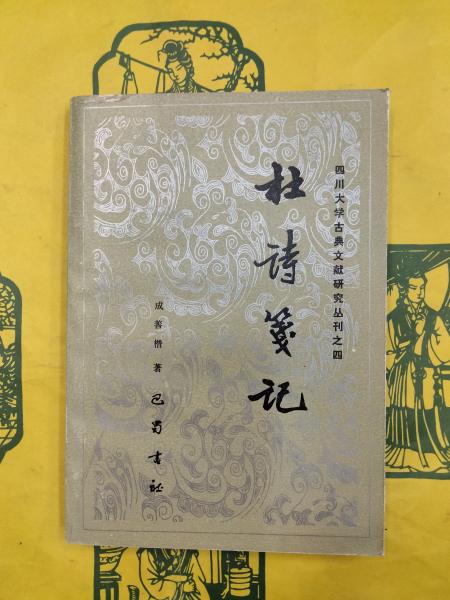 四川大学古典文献研究丛刊之四
杜诗笺记
成善楷 著
巴蜀书社